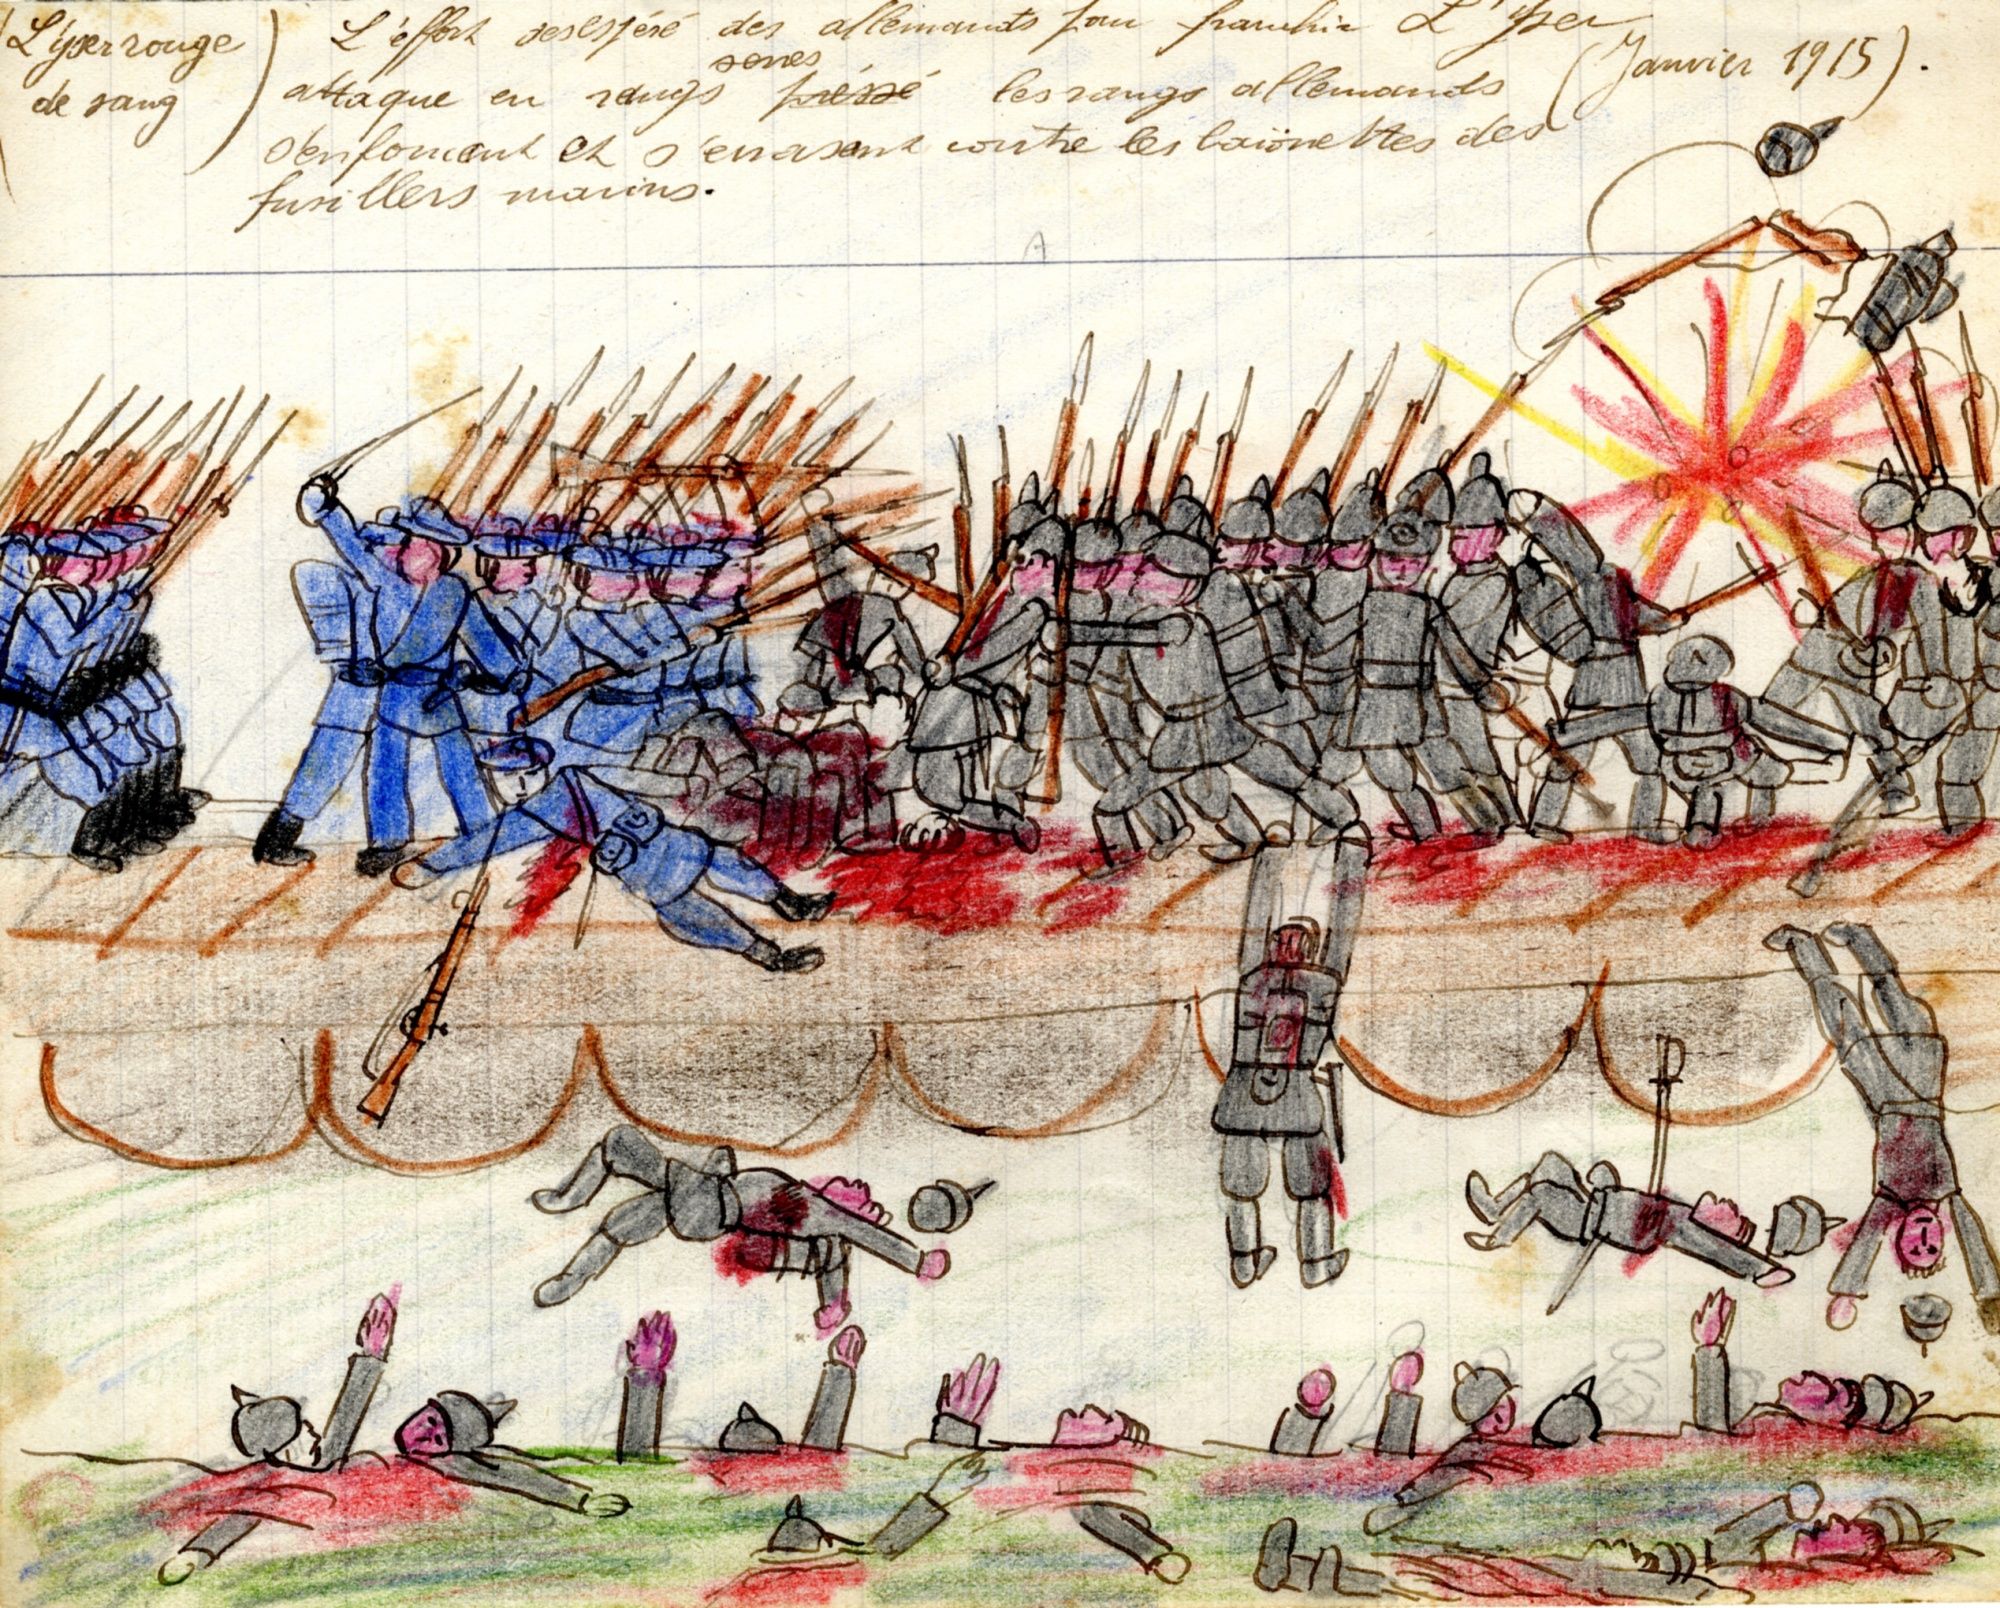 L'yser rouge
de sang
L'éffort desespéré des allemands pour franchir L'yser
(Janvier 1915).
serrés
attaque en rangs préssé les rangs allemands
s'enfoncent et s'ecrasent contre les baïonettes des
fusillers marins.
A